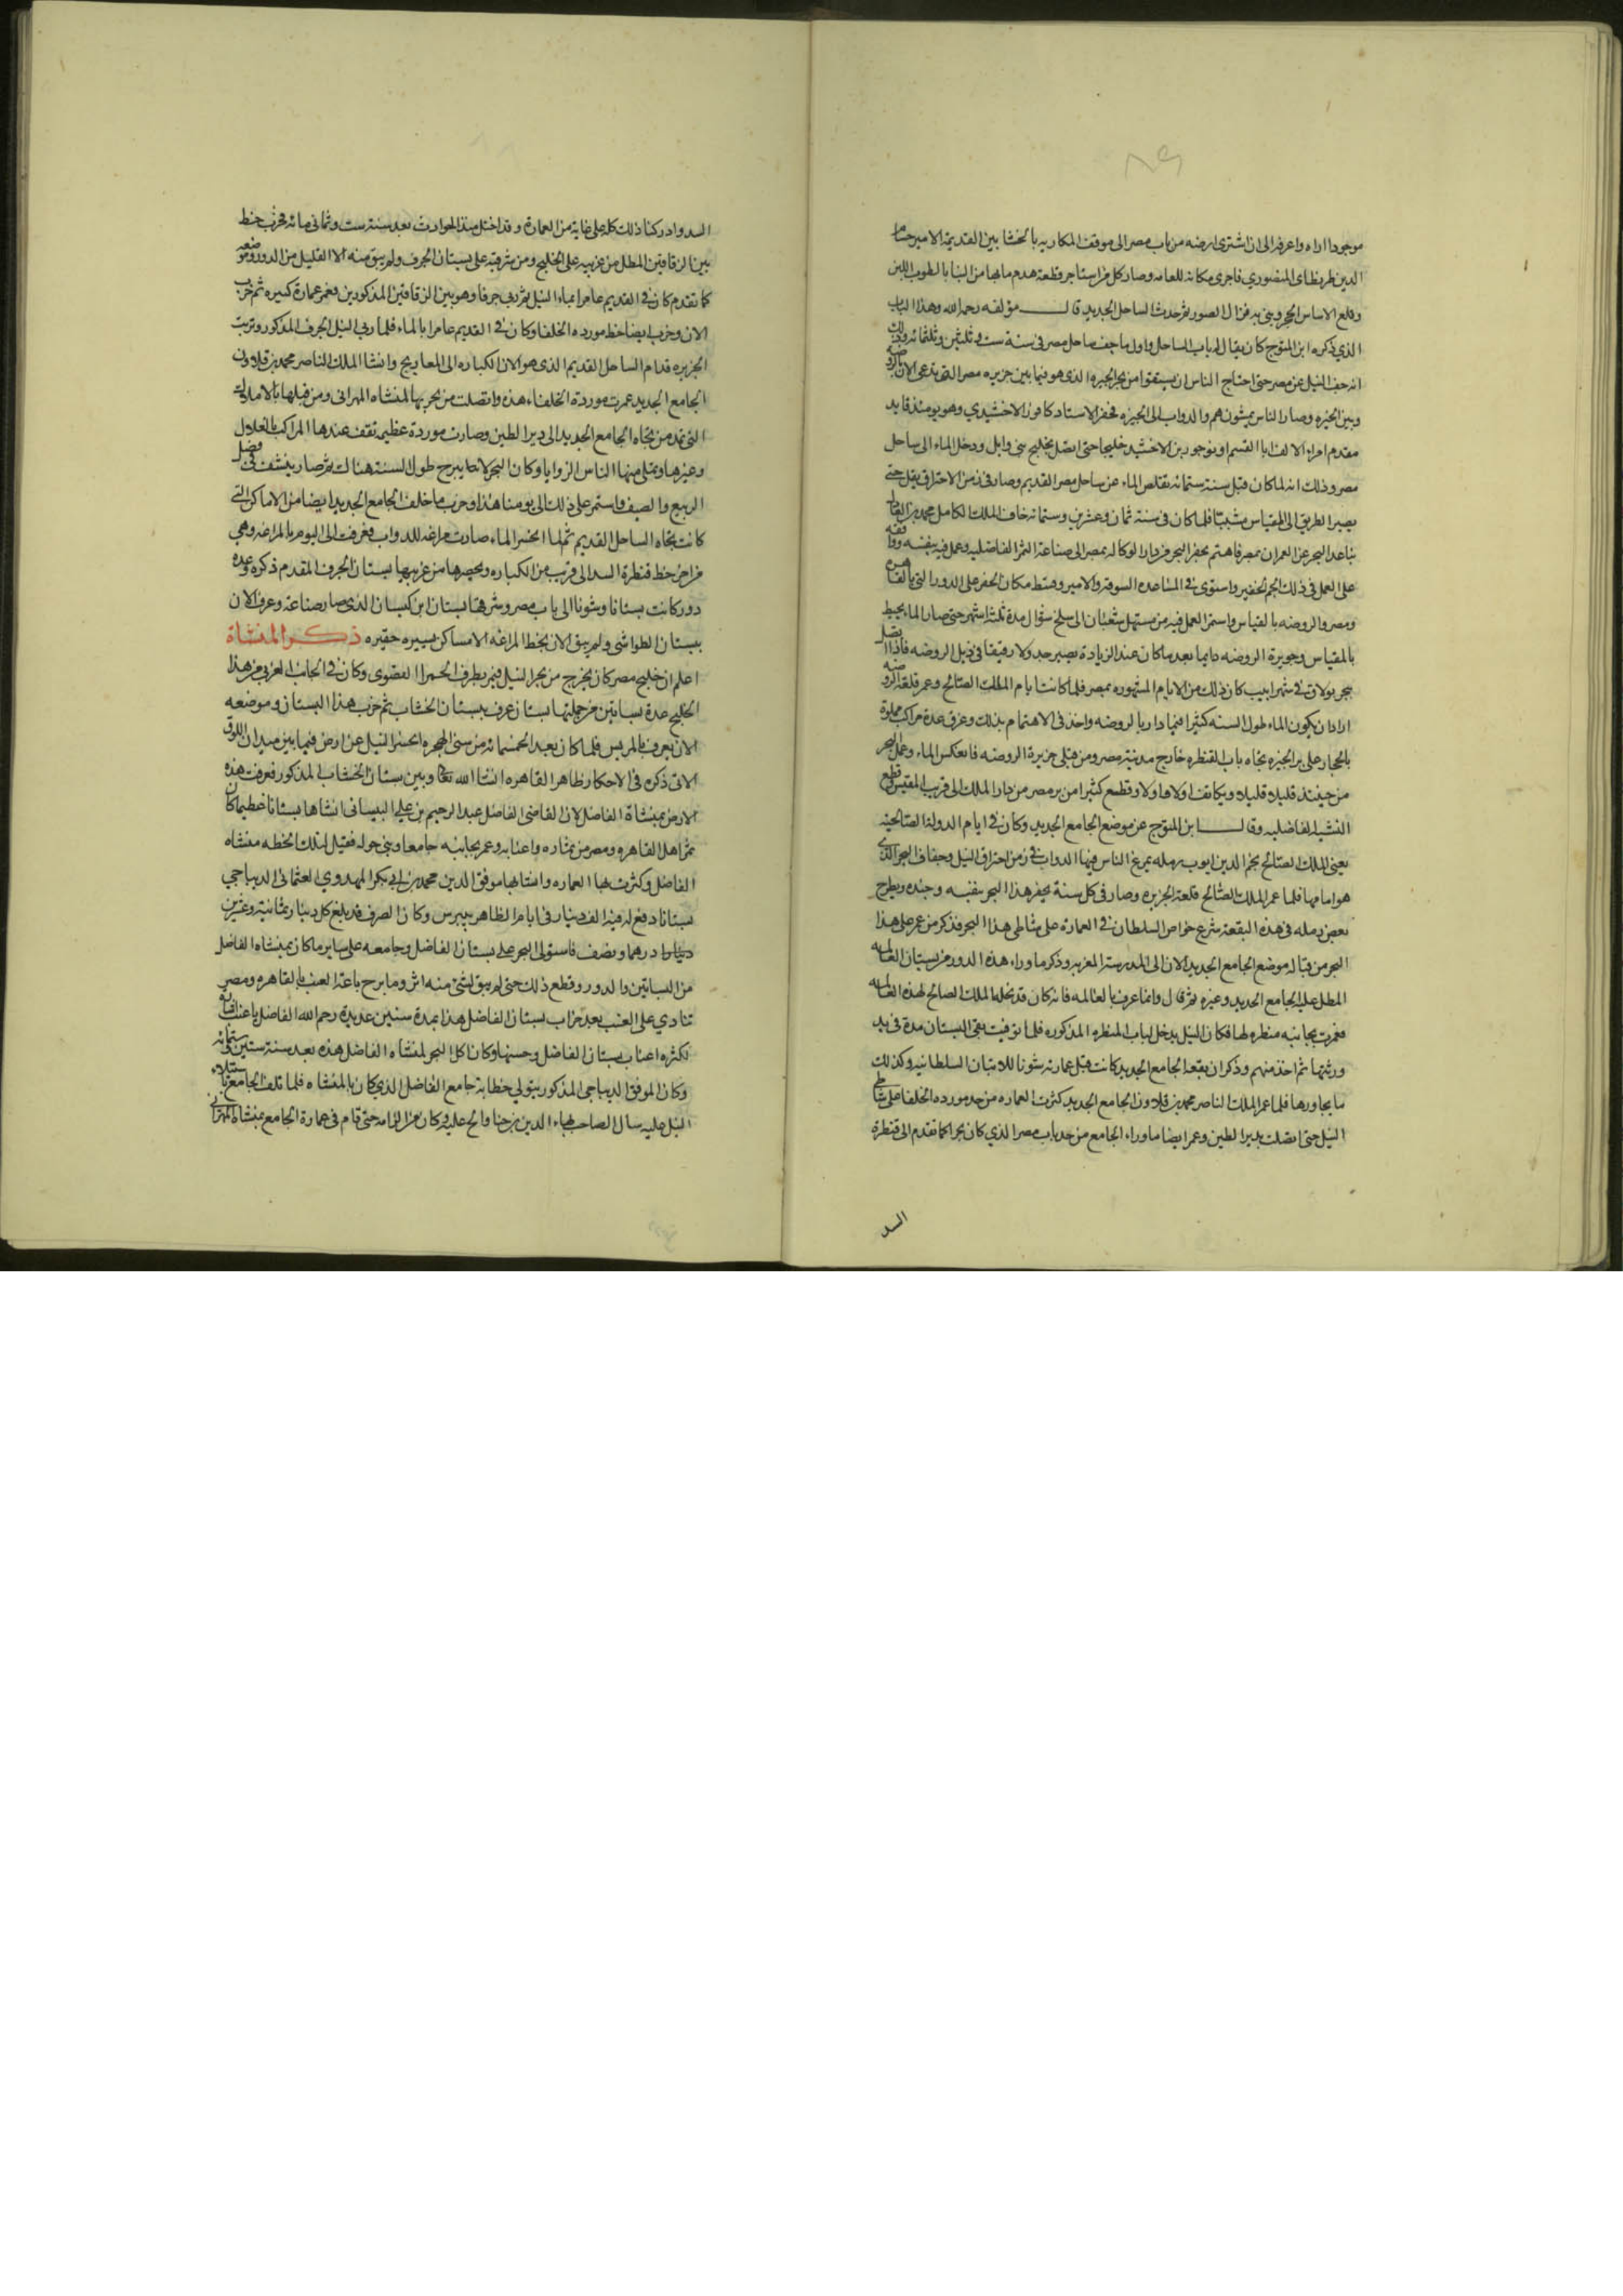 ٨٩
موجودا اراه واعرفه الى ان اشترى ارضه من باب مصر الى موقف المكاريه بالخشابين القديمة الامير حسام
الدين طرنطاى المنصوري فاجرى مكانه للعامه وصار كل من استاجر قطعة هدم مابها من البنا بالطوب اللبن
وقلع الاساس الحجر وبنى به فزال الصور ثم حدث الساحل الجديد قال مؤلفه رحمه الله وهذا الباب
الذي ذكره ابن المتوج كان يقال له باب الساحل واول ما جف ساحل مصر في سنة ست وثلثين وثلثمائه وذلك
انه جف النيل عن مصر حتى احتاج الناس ان يستقوا من بحر الجيزه الذى هو فيما بين جزيره مصر التى تدعى الان بالروضه
وبين الجيزه وصار الناس يمشون هم والدواب الى الجيزه فحفر الاستاد كافور الاخشيدي وهو يومئذ قايد
مقدم امراء الالف ابا القسم اونوجور بن الاخشيد خليجا حتى اتصل بخليج بنى وابل ودخل الماء الى ساحل
مصر وذلك انه لما كان قبل سنة ستمائه تقلص الماء عن ساحل مصر القديم وصار فى زمن الاحتراق يقل حتى
يصير الطريق الى المقياس مشيبسا فلما كان فى سنة ثمان وعشرين وستمائه خاف الملك الكامل محمد من
تباعد البحر عن العمران بمصر فاهتم بحفر البحر من دار الوكاله بمصر الى صناعة التمر الفاضليه وعمل فيه بنفسه
على العمل فى ذلك الجم الغفير واستوى فى المساعده السوقه والامير وقسط مكان الحفر على الدور التى بالقاهره
ومصر والروضه بالقياس واستمر العمل فيه من مستهل شعبان الى سلخ شوال مدة ثلثة اشهر حتى صار الماء يحيط
بالمقياس وجزيرة الروضه دايما بعد ما كان عند الزيادة يصير جدولا رقيقا فى ذيل الروضه فاذا اتصل
ببحر بولاق فى شهر ابيب كان ذلك من الايام المشهوره بمصر فلما كانت ايام الملك الصالح وعمر قلعة الروضه
اراد ان يكون الماء طول السنه كثيرا فيما دار بالروضه واخذ فى الاهتمام بذلك وغرق عدة مراكب مملوة
بالحجار على بر الجيزه تجاه باب القنطره خارج مدينة مصر ومن قبلى جزيرة الروضه فانعكس الماء وعمل البحر
من حينئذ قليلا قليلا وتكاثف اولا واولا وقطع كثيرا من بر مصر من دار الملك الى قريب المقس وقطع
النشيه الفاضليه وقال ابن المتوج عن موضع الجامع الجديد وكان فى ايام الدولة الصالحيه
يعنى الملك الصالح نجم الدين ايوب رمله يمرغ الناس فيها الدواب فى زمن احتراق النيل وجفاف البحر الذى
هو امامها فلما عمر الملك الصالح قلعة الجزيره وصار فى كل سنة يحفر هذا البحر بنفسه وجنده ويطرح
بعض رمله فى هذه البقعة شرع خواص السلطان فى العماره على شاطى هذا البحر فذكر من عمر على هذا
البحر من قباله موضع الجامع الجديد الان الى المدرسة المعزيه وذكر ما وراء هذه الدور من بستان العالمه
المطل عليه الجامع الجديد وغيره ثم قال وانما عرف بالعالمه فانه كان قد نخله الملك الصالح لهذه العالمه
فعمرت بجانبه منظره لها فكان النيل يدخل لباب المنظره المذكوره فلما توفيت بقى البستان مدة فى يد
ورثتها ثم اخذ منهم وذكر ان بقعة الجامع الجديد كانت قبل عمارته شونا للاتبان السلطانيه وكذلك
ما يجاورها فلما عمر الملك الناصر محمد بن قلاوون الجامع الجديد كثرت العماره من حد مورده الخلفا على شاطى
النيل حتى اتصلت بدير الطين وعمر ايضا ما وراء الجامع من حد باب مصر الذي كان بحرا كما تقدم الى قنطرة
السد
السد وادركنا ذلك كله على غاية من العمارة وقد اختل منذ الحوادث بعد سنة ست وثماني مائه فخرب خط
بين الزقاقين المطل من غربيه على الخليج ومن شرقيه على بستان الجرف ولم يبق منه الا القليل من الدور وموضعه
كما تقدم كان فى القديم عامرا بماء النيل ثم ربى جرفا وهو بين الزقاقين المذكورين فعمر عمارة كبيره ثم خرب
الان وخرب ايضا خط مورده الخلفا وكان فى القديم عامرا بالماء فلما ربى النيل الجرف المذكور وتربت
الجزيره قدام الساحل القديم الذى هو الان الكباره الى المعاريج وانشا الملك الناصر محمد بن قلاوون
الجامع الجديد عمرت موردة الخلفاء هذه واتصلت من بحريها بالمنشاه المهرانى ومن قبلها بالاملاك
التى تمتد من تجاه الجامع الجديد الى دير الطين وصارت موردة عظيمه تقف عندها المراكب بالغلال
وغيرها ويملى منها الناس الروايا وكان البحر لا يبرح طول السنة هناك ثم صار ينشف فى فصل
الربيع والصيف واستمر على ذلك الى يومنا هذا وخرب ما خلف الجامع الجديد ايضا من الاماكن التى
كانت تجاه الساحل القديم ثم لما انحسر الماء صارت مراغه للدواب فعرفت الى اليوم بالمراغه وهى
من اخر خط قنطرة السد الى قريب من الكباره ويحصرها من غربيها بستان الجرف المقدم ذكره وعده
دور كانت بستانا وشونا الى باب مصر وشرقها بستان ابن كيسان الذى صار صناعة وعرف الان
ببستان الطواشى ولم يبق الان بخط المراغه الا مساكن يسيره حقيره ذكر المنشاة
اعلم ان خليج مصر كان يخرج من بحر النيل فيمر بطرف الحمرا القصوى وكان فى الجانب الغربى من هذا
الخليج عدة بساتين من جملتها بستان عرف ببستان الخشاب ثم خرب هذا البستان وموضعه
الان يعرف بالمريس فلما كان بعد الخمسمائه من سنى الهجره انحسر النيل عن ارض فيما بين ميدان اللوق
الاتى ذكره فى الاحكار ظاهر القاهره انشا الله تعالى وبين بستان الخشاب المذكور فعرفت هذه
الارض بمنشاة الفاضل لان القاضى الفاضل عبد الرحيم بن على البيسانى انشا بها بستانا عظيما كان
يمير اهل القاهره ومصر من ثماره واعنابه وعمر بجانبه جامعا وبنى حوله فقيل لتلك الخطه منشاه
الفاضل وكثرت بها العماره وانشا بها موفق الدين محمد بن ابى بكر المهدوي العثمانى الديباجى
بستانا دفع له فيه الف دينار فى ايام الظاهر بيبرس وكان الصرف قد بلغ كل دينار ثمانية وعشرين
درهما ونصف فاستولى البحر على بستان الفاضل وجامعه على ساير ما كان بمنشاه الفاضل
من البساتين والدور وقطع ذلك حتى لم يبق لشئ منه اثر وما برح باعة العنب بالقاهره ومصر
تنادي على العنب بعد خراب بستان الفاضل هذا بعدة سنين عديدة رحم الله الفاضل يا عنب
لكثره اعناب بستان الفاضل وحسنها وكان اكل البحر لمنشاه الفاضل هذه بعد سنة ستين وستمائه
وكان الموفق الديباجى المذكور يتولى خطابة جامع الفاضل الذي كان بالمنشاه فلما تلف الجامع باستيلاء
النيل عليه سال الصاحب بهاء الدين بن حنا والح عليه وكان من الزامه حتى قام فى عمارة الجامع بمنشاة المهرانى